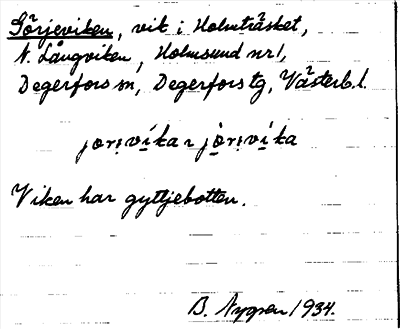 Görjeviken, vik i Holmträsket,
N. Långviken, Holmsund nr 1,
Degerfors sn, Degerfors tg, Västerb. l.
Viken har gyttjebotten.
B. Nygren 1934.